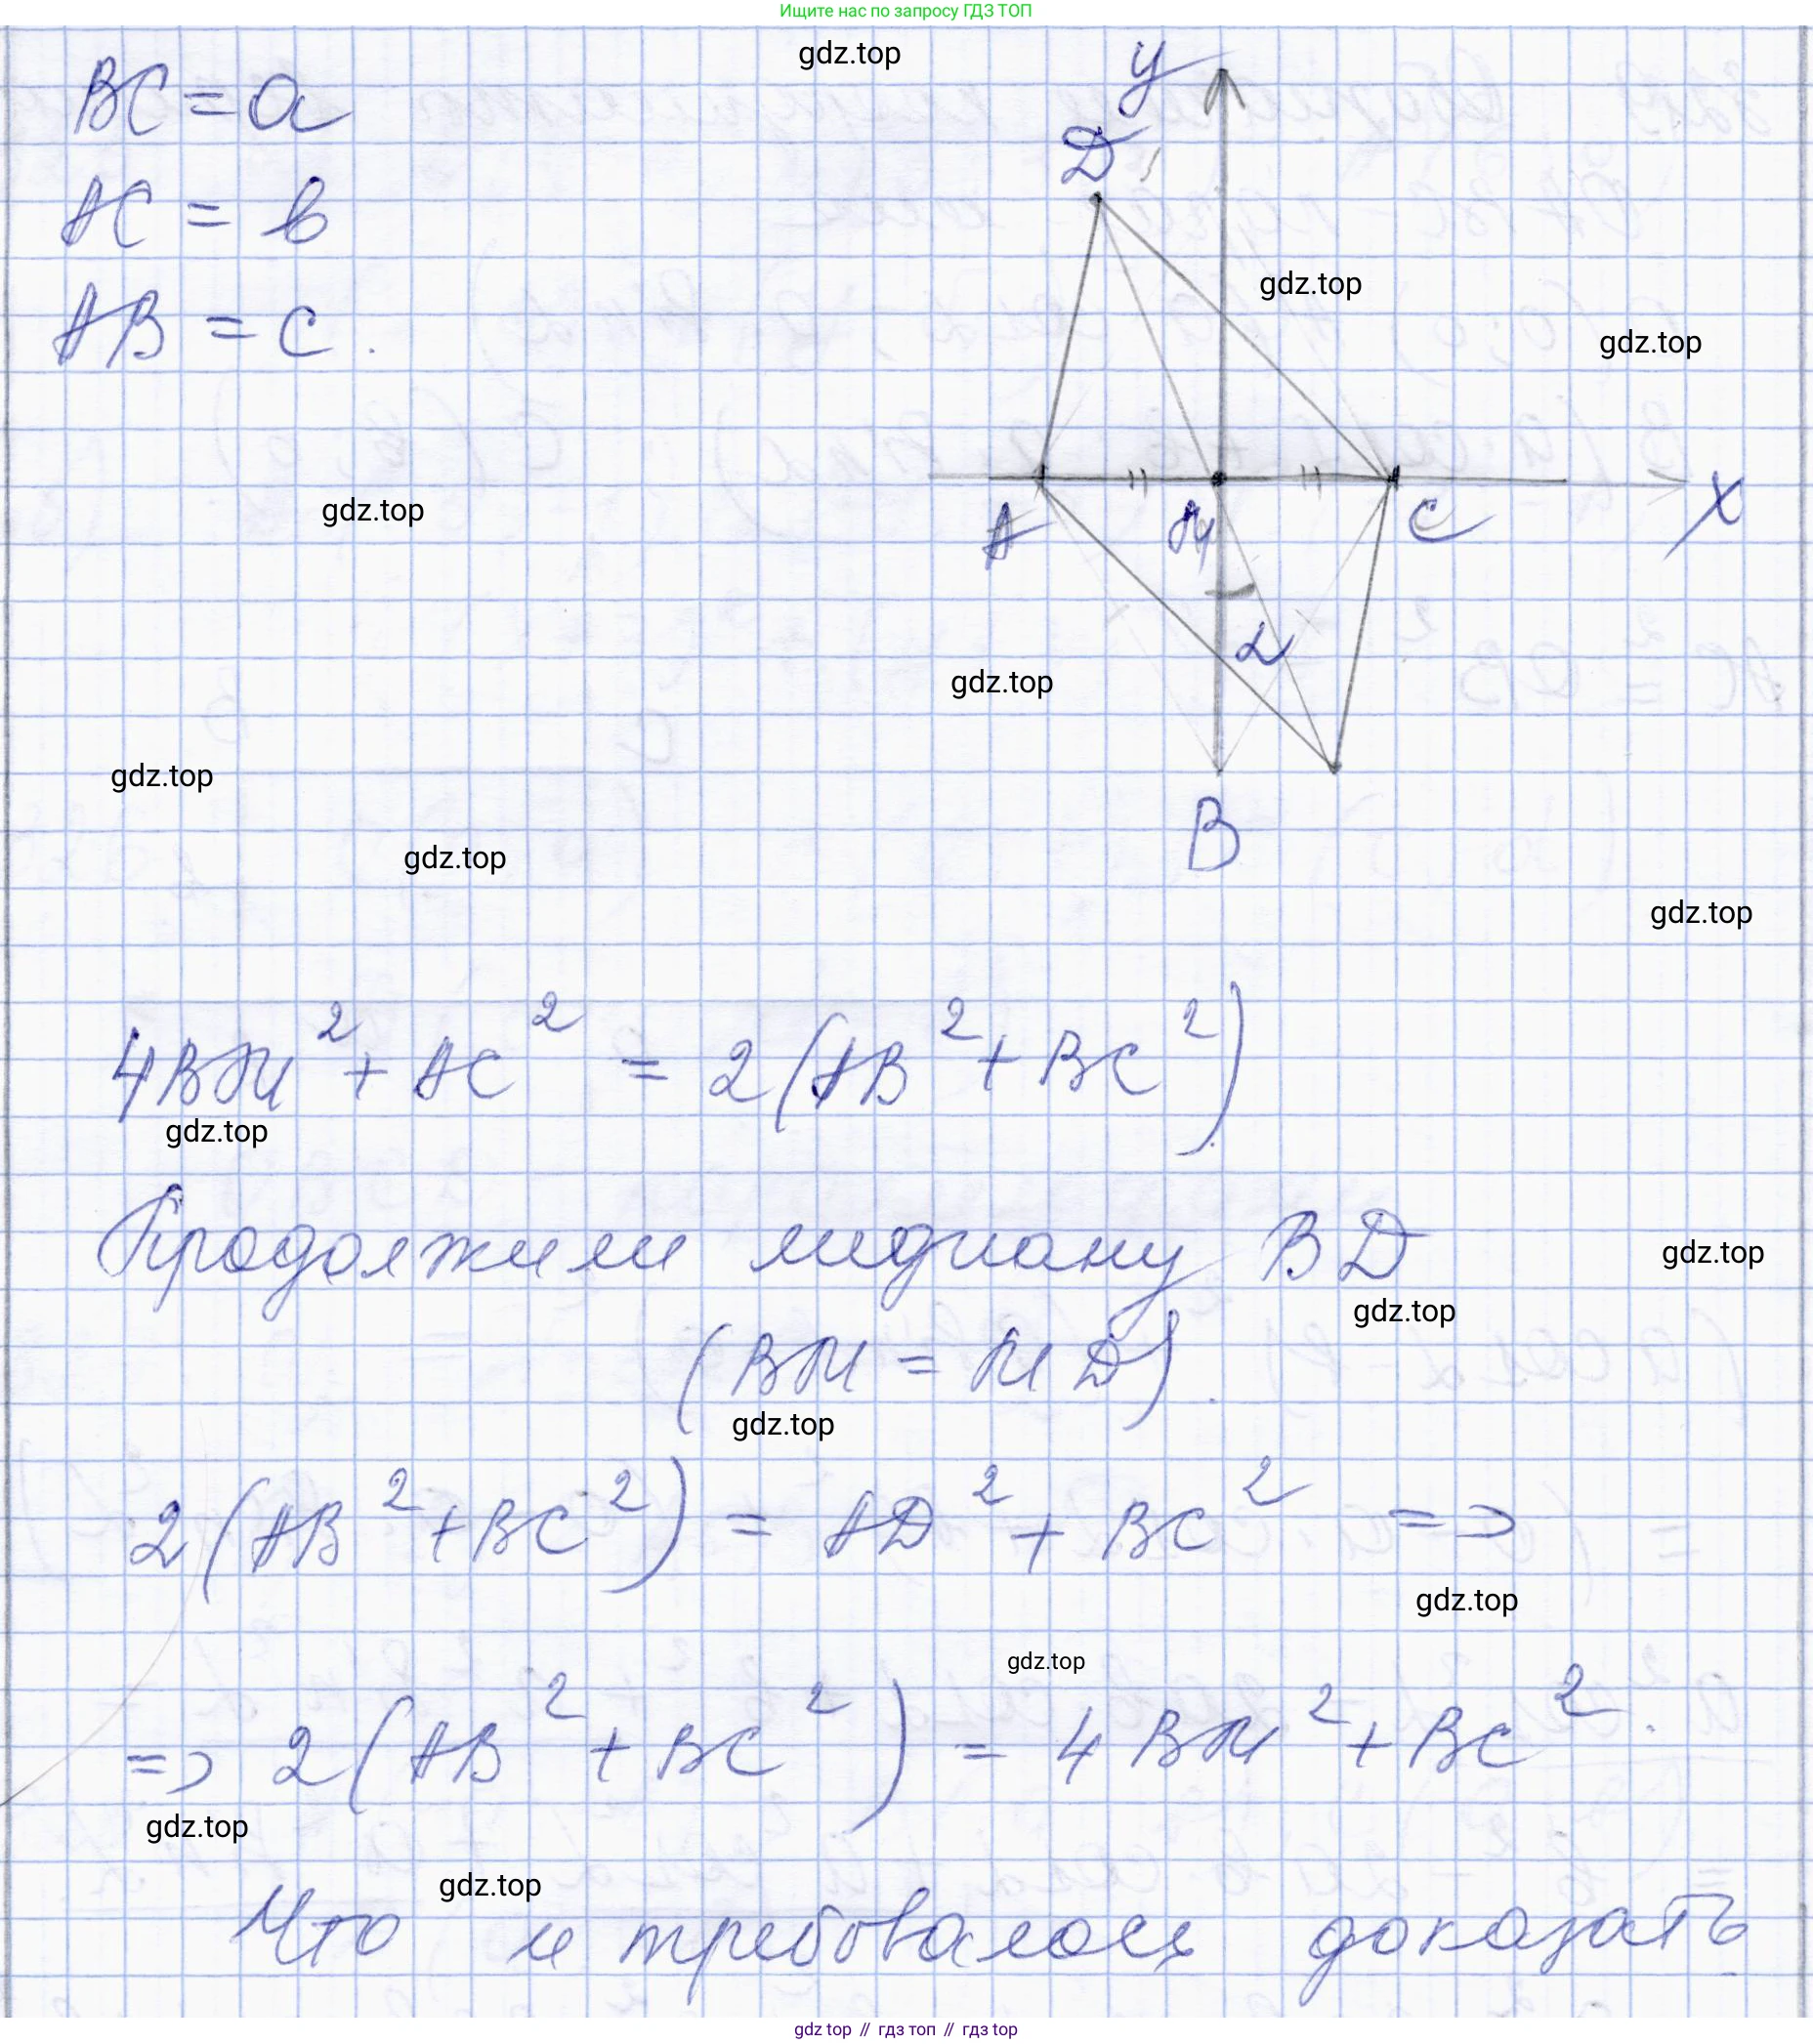 Ищите нас по запросу ГДЗ ТОП
gdz.top
BC = a
AC = b
AB = c.
y
D
gdz.top
gdz.top
gdz.top
A
M
C
X
α
gdz.top
gdz.top
B
gdz.top
gdz.top
4BM² + AC² = 2(AB² + BC²)
gdz.top
Продолжим медиану BD
gdz.top
gdz.top
(BM = MD).
gdz.top
2(AB² + BC²) = AD² + BC² =>
gdz.top
gdz.top
=> 2(AB² + BC²) = 4BM² + BC².
gdz.top
gdz.top
Что и требовалось доказать.
gdz top // гдз топ // гдз top